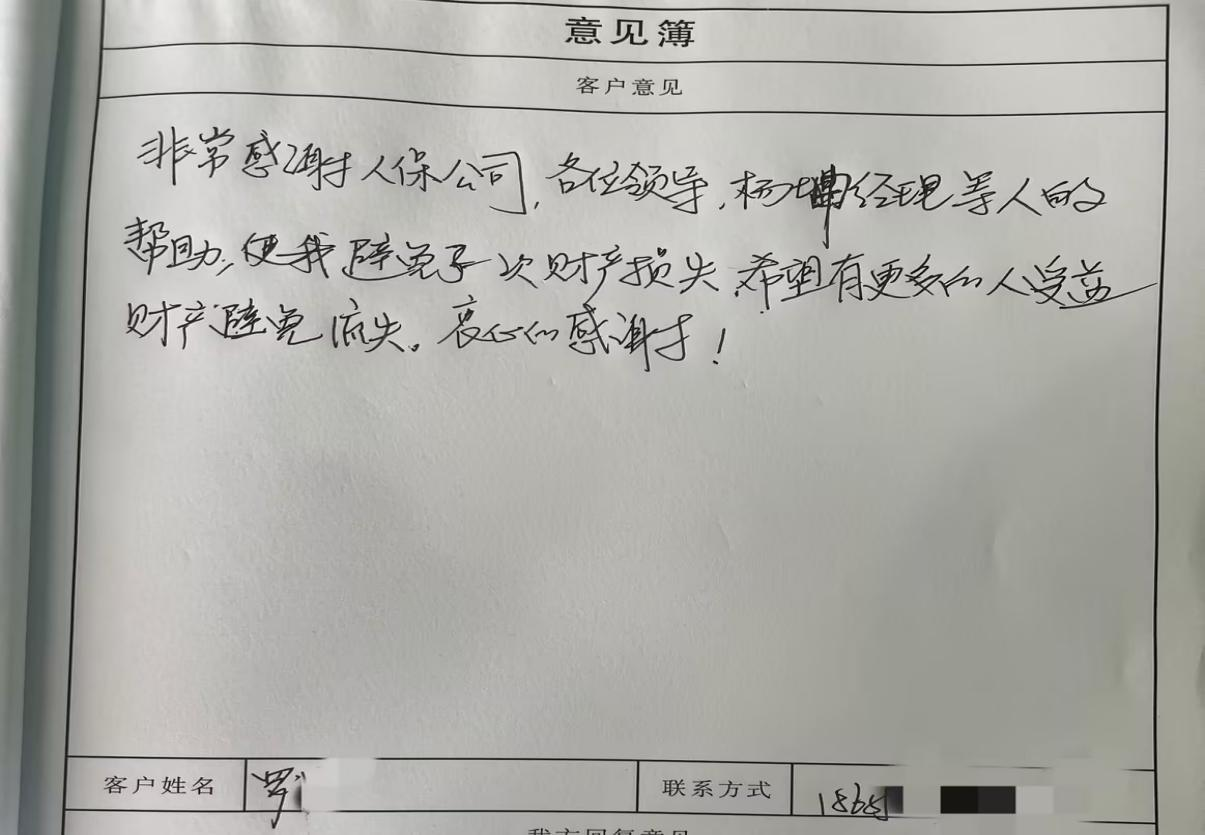 意见簿
客户意见
非常感谢人保公司,各位领导,杨 经理等人的
帮助,使我避免了次财产损失.希望有更多的人受益
财产避免流失。衷心的感谢!
客户姓名 罗 联系方式 1865
我方回复意见